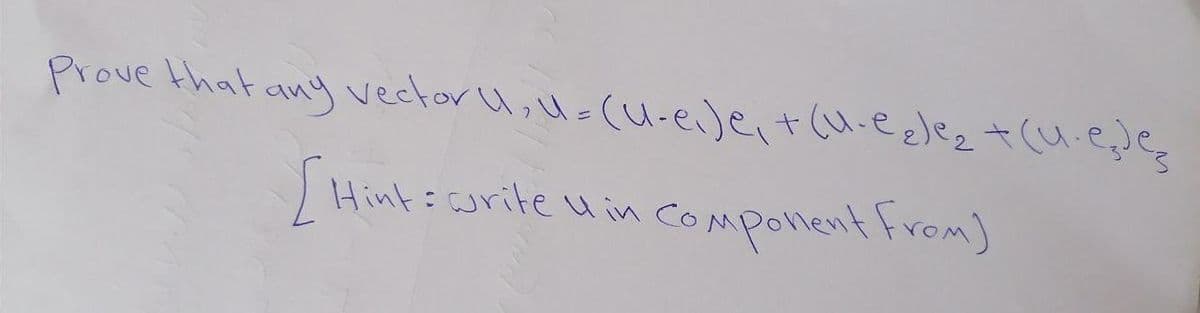 Prove that any vector u, u = (u-e₁)e₁ + (u·e₂)e₂ + (u·e₃)e₃
[Hint: write u in component from)